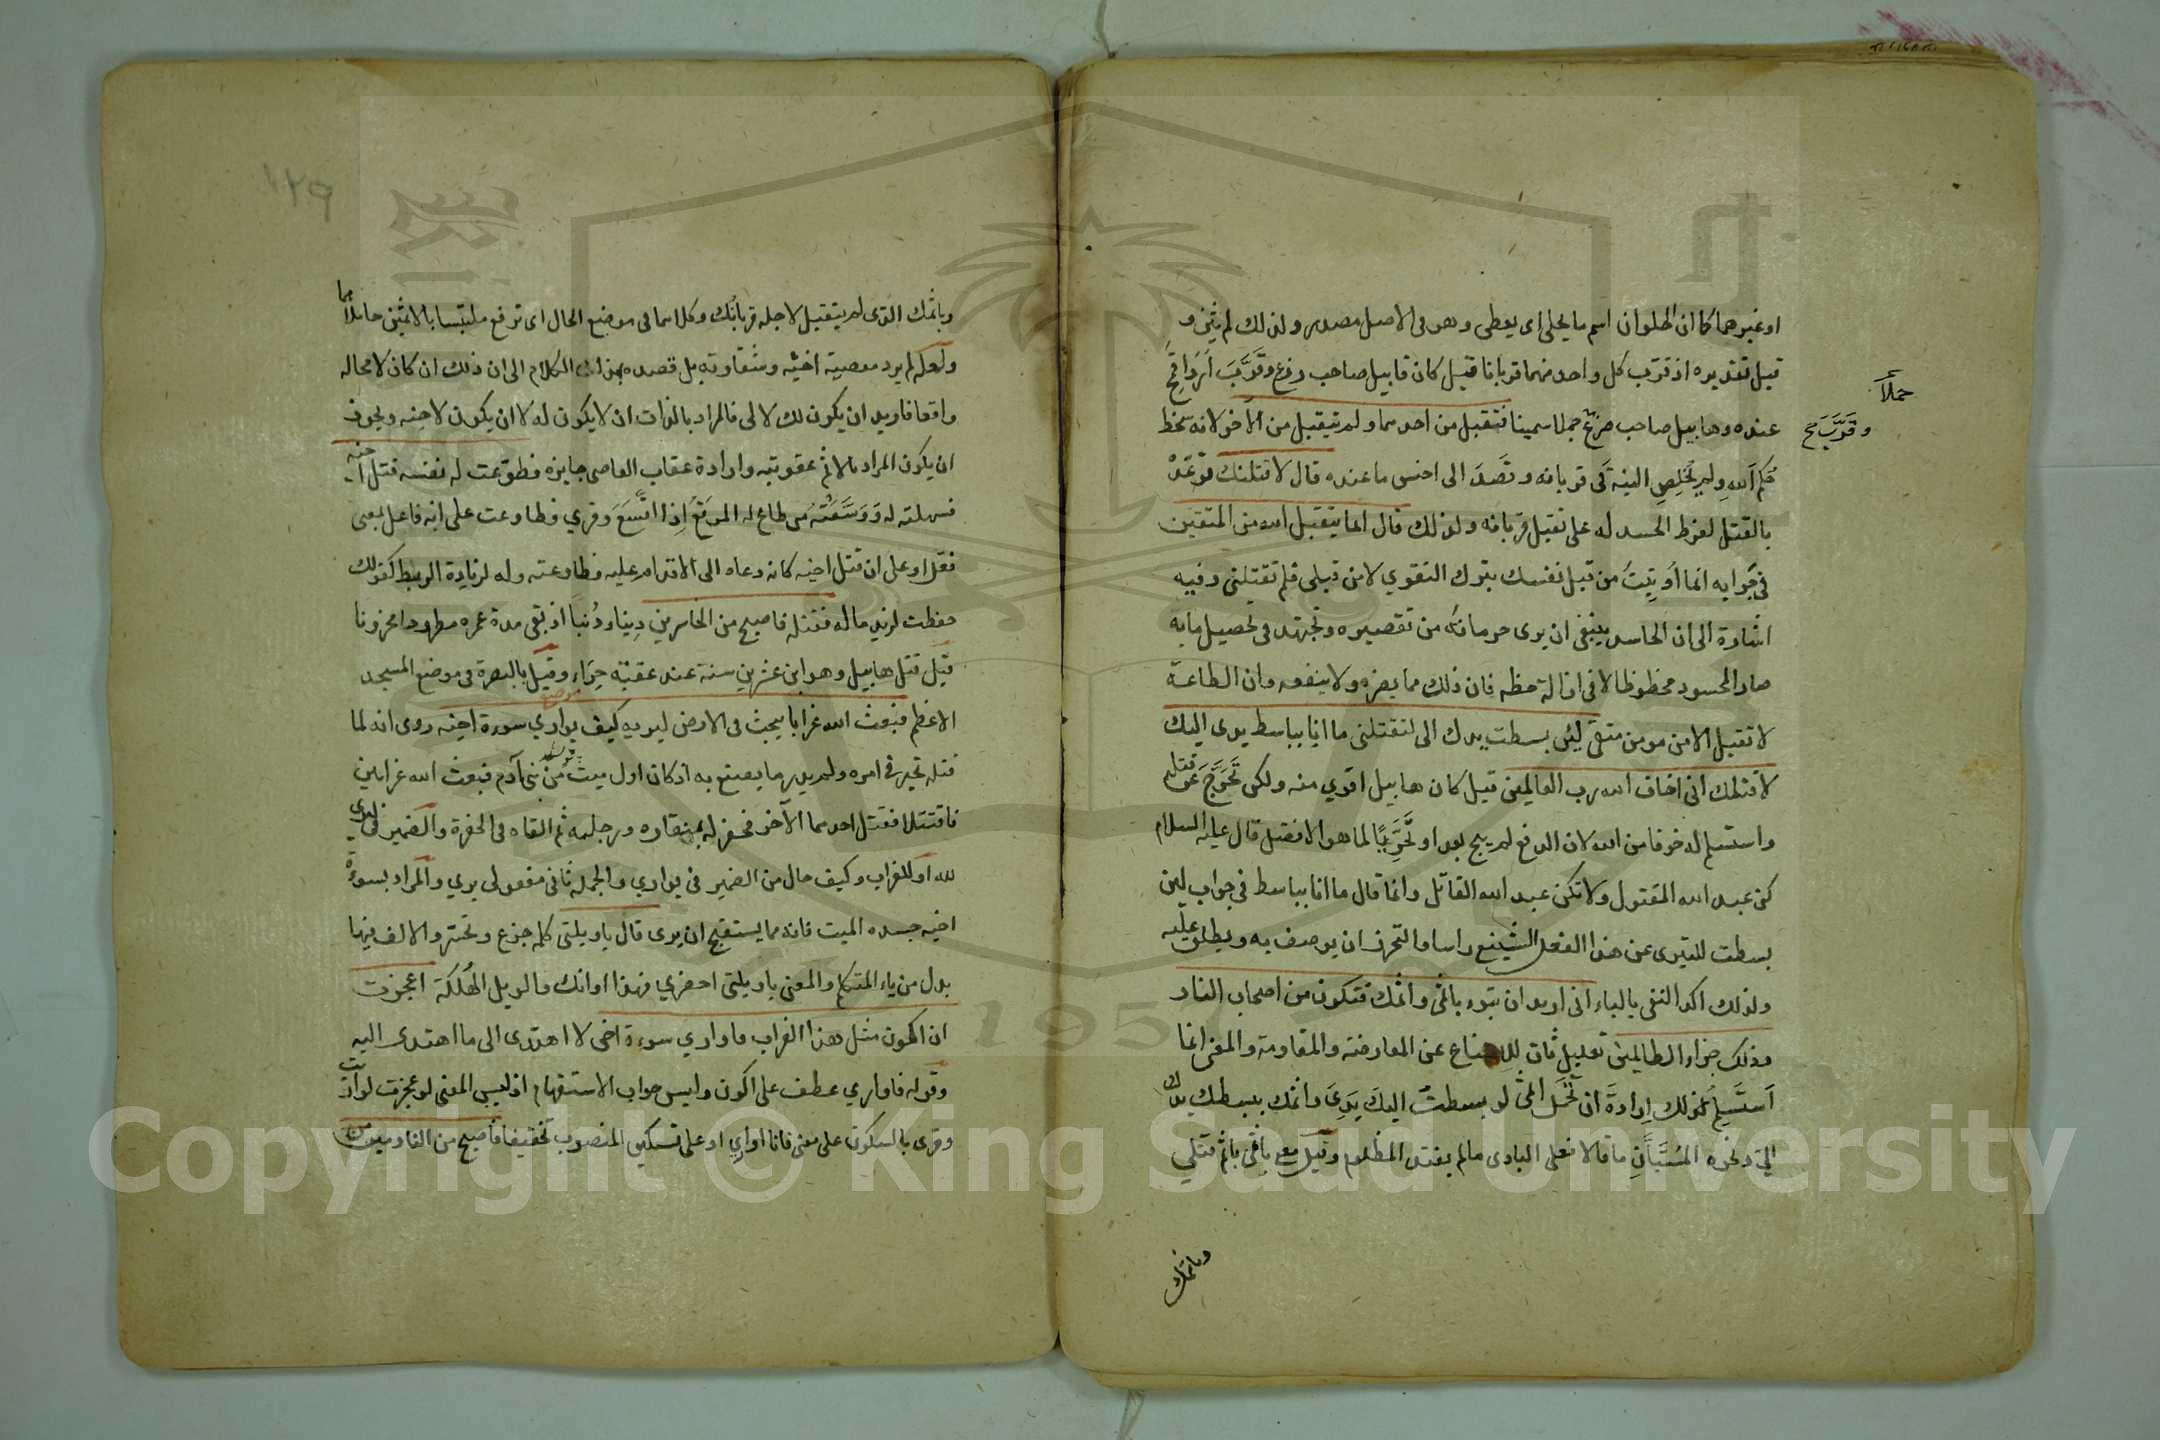 او غيرهما كما ان الحلوان اسم ما يحلى اى يعطى وهو فى الاصل مصدر ولذلك لم يثن و
قيل تقديره اذ قرّب كل واحد منهما قربانا قيل كان قابيل صاحب زرع وقَرَّبَ اَرْدَا قمح
عنده وهابيل صاحب ضرع جملا سمينا فتقبل من احدهما ولم يتقبل من الاخر لانه سخط
حُكم اَللهِ ولم يُخْلِصِ النية فى قربانه وقَصَدَ الى اخس ما عنده قال لاقتلنك تَوَعَّدَهْ
بالقتل لفرط الحسد له على تقبل قربانه ولذلك قال انما يتقبل الله من المتقين
فى جَوابه انما اُوتِيتَ من قبل نفسك بترك التقوي لا من قبلى فلم تقتلنى وفيه
اشارة الى ان الحاسد ينبغى ان يرى حرمانه من تقصيره ويجتهد فى تحصيل ما به
صار المحسود محظوظا لا فى ازالة حظه فان ذلك مما يضره ولا ينفعه وان الطاعة
لا تقبل الا من مومن متقى لئن بسطت يدك الى لتقتلنى ما انا بباسط يدى اليك
لاقتلك انى اخاف الله رب العالمين قيل كان هابيل اقوي منه ولكن تَحَرَّجَ عن قتله
واستسلم له خوفا من الله لان الدفع لم يبح بعد او تَحَرِّيًا لما هو الافضل قال عليه السلام
كن عبد الله المقتول ولا تكن عبد الله القاتل وانما قال ما انا بباسط فى جواب لين
بسطت للتبرى عن هذا الفعل الشنيع راسا والتحرز ان يوصف به ويطلق عليه
ولذلك اكد النفى بالباء انى اريد ان تبوء باثمى واثمك فتكون من اصحاب النار
وذلك جزاء الظالمين تعليل ثان للامتناع عن المعارضة والمقاومة والمعنى انما
اَستَسْلِمُ لذلك اِرادةَ ان تَحْمِلَ اثمى لو بسطتُ اليكَ يَدِىَ واثمك ببسطك يدك
الىّ ونحوه المُسْتَبَّانِ ما قالا فعلى البادى ما لم يعتد المظلوم وقيل معنى باثمى باثم قتلي
حملاً
وقَرَّبَ صح
وباثمك
١٢٩
وباثمك الذى لم يتقبل لاجله قربانك وكلاهما فى موضع الحال اى ترجع ملتبسا بالاثمين حاملا لهما
ولعله لم يرد معصية اخيه وشقاوته بل قصده بهذا الكلام الى ان ذلك ان كان لا محاله
واقعا فاريد ان يكون لك لا لى فالمراد بالذات ان لا يكون له لا ان يكون لاخيه ويجوز
ان يكون المراد بالاثم عقوبته وارادة عقاب العاصى جايزه فطوّعت له نفسه قتل اخيه
فسهلته له وَوَسَّعَتْهُ من طاع له المرتَعُ اِذا اتَّسَعَ وقري فطاوعت على انه فاعل بمعنى
فعّل او على ان قتل اخيه كانه دعاه الى الاقدام عليه فطاوعته وله لزيادة الربط كقولك
حفظت لزيد ماله فقتله فاصبح من الخاسرين دِينا ودُنيا اذ بقى مدة عمره مطرودا محزونا
قيل قتل هابيل وهو ابن عشرين سنة عند عقبة حِرَاء وقيل بالبصرة فى موضع المسجد
الاعظم فبعث الله غرابا يبحث فى الارض ليريه كيف يواري سوءة اخيه روى انه لما
قتله تحير فى امره ولم يدر ما يصنع به اذ كان اول ميت من بنى آدم فبعث الله غرابين
فاقتتلا فقتل احدهما الآخر فحفر له بمنقاره ورجليه ثم القاه فى الحفرة والضمير فى ليرى
لله او للغراب وكيف حال من الضمير فى يواري والجملة ثانى مفعولى يري والمراد بسوءة
اخيه جسده الميت فانه مما يستقبح ان يرى قال ياويلتى كلمه جزع وتحسر والالف فيها
بدل من ياء المتكلم والمعنى ياويلتى احضري فهذا اوانك والويل الهُلكة اعجزت
ان اكون مثل هذا الغراب فاواري سوءة اخى لا اهتدى الى ما اهتدى اليه
وقوله فاواري عطف على اكون وليس جواب الاستفهام اذ ليس المعنى لو عجزت لواريت
وقرى بالسكون على معنى فانا اواري او على تسكين المنصوب تخفيفا فاصبح من النادمين
Copyright © King Saud University
1957